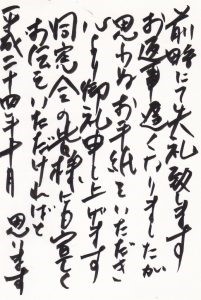 前略にて失礼致します
お返事遅くなりましたが
思わぬお手紙をいただき
心より御礼申し上げます
同窓会の皆様にも宜しく
お伝えいただければと
思います
平成二十四年十月